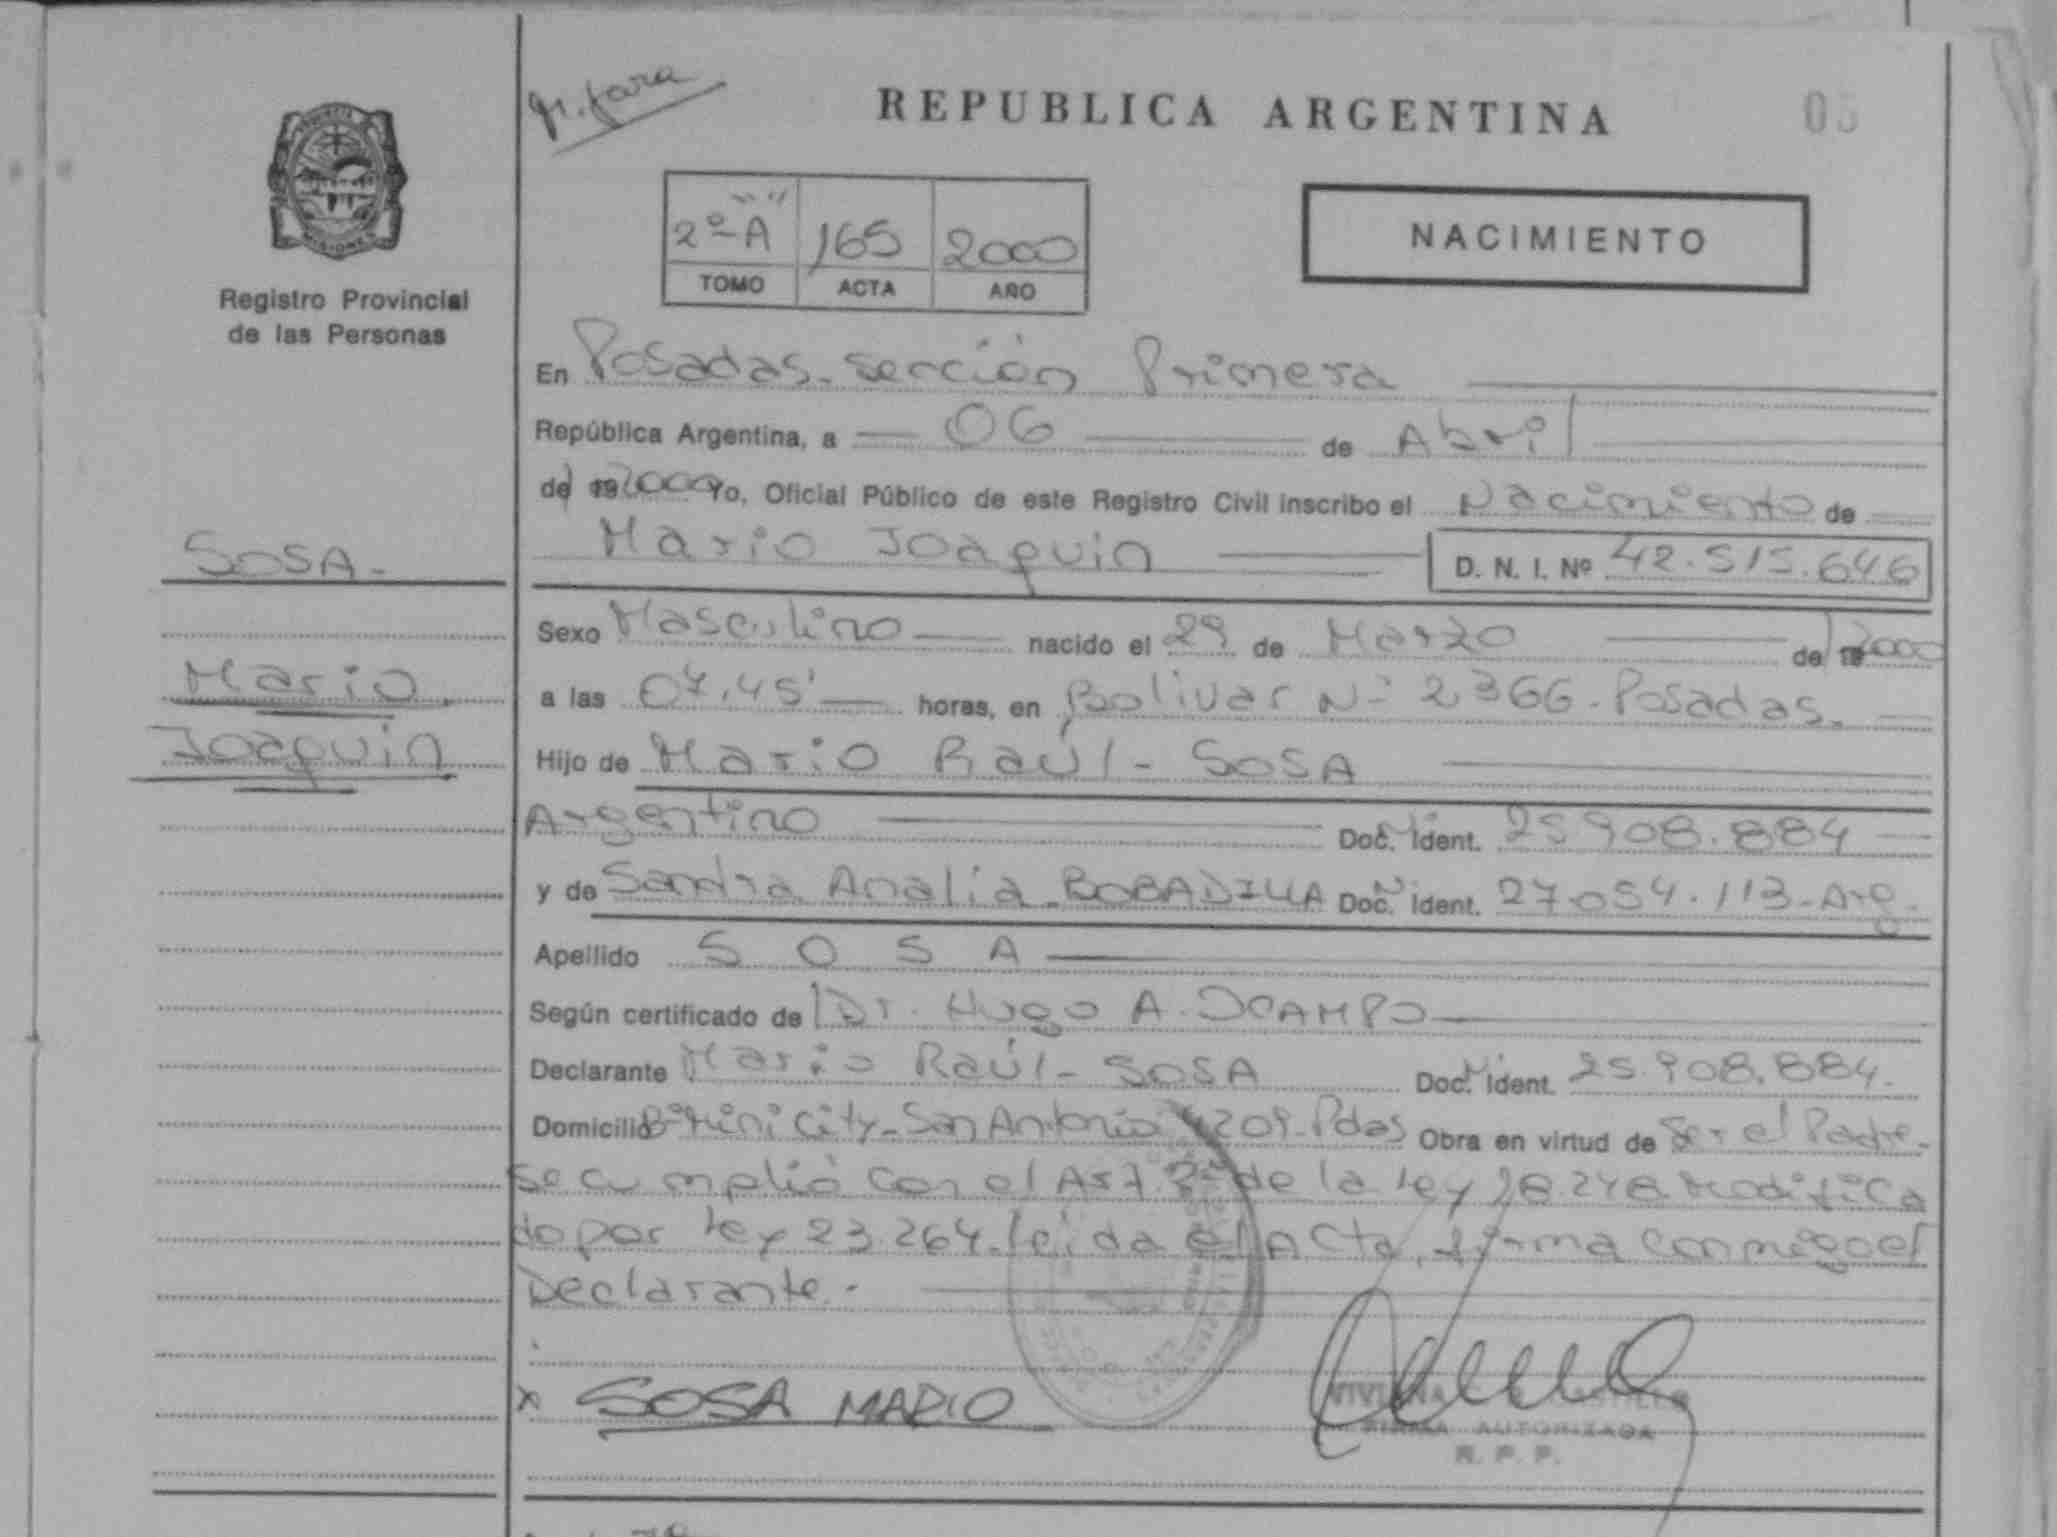 REPUBLICA ARGENTINA
05
PROVINCIA
MISIONES
Registro Provincial
de las Personas
2º "A" 165 2000
TOMO ACTA AÑO
NACIMIENTO
En Posadas. sección Primera
República Argentina, a 06 de Abril
del 2000 Yo, Oficial Público de este Registro Civil inscribo el Nacimiento de
Mario Joaquin D. N. I. Nº 42.515.646
SOSA-
Mario
Joaquin
Sexo Masculino nacido el 29 de Marzo del 2000
a las 07.45' horas, en Bolivar Nº 2366. Posadas.
Hijo de Mario Raúl- SOSA
Argentino Doc. Ident. 25.908.884
y de Sandra Analia-BOBADILLA Doc. Ident. 27.054.113-Arg.
Apellido SOSA
Según certificado de Dr. Hugo A. OCAMPO
Declarante Mario Raúl- SOSA Doc. Ident. 25.908.884.
Domicilio Bº Mini City-San Antonio 4209-Pdas Obra en virtud de Ser el Padre-
Se cumplió con el Art. 2º de la Ley 18.248 Modifica
do por Ley 23.264. leida el Acta, firma conmigo el
Declarante.-
x SOSA MARIO
FIRMA AUTORIZADA
R. P. P.